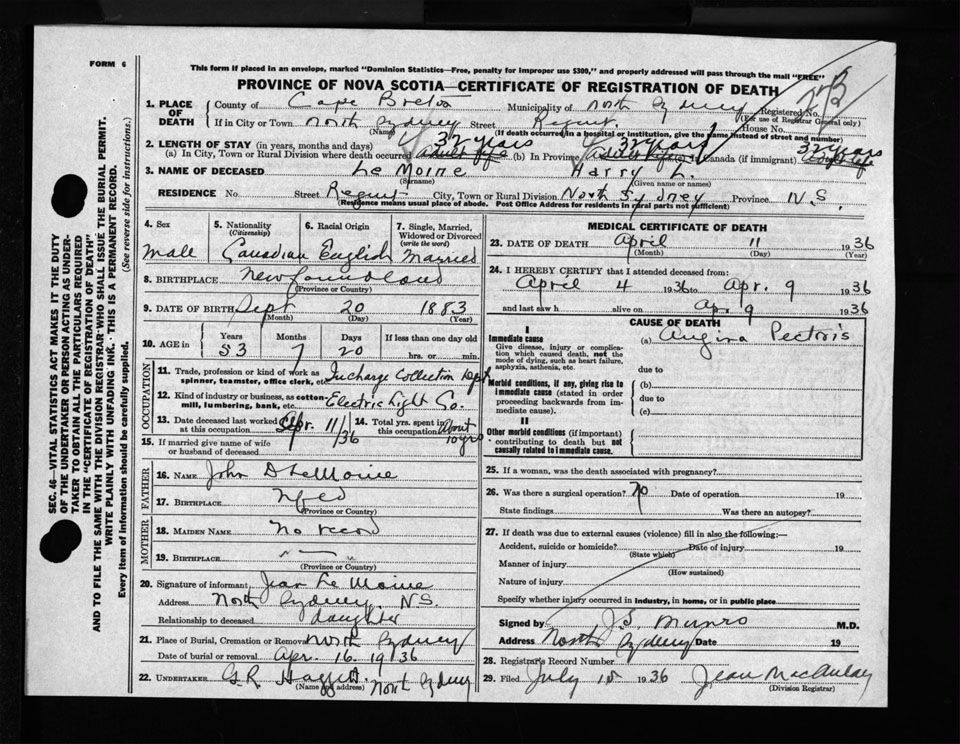 FORM 6
This form if placed in an envelope, marked "Dominion Statistics—Free, penalty for improper use $300," and properly addressed will pass through the mail "FREE"
PROVINCE OF NOVA SCOTIA—CERTIFICATE OF REGISTRATION OF DEATH
1. PLACE OF DEATH County of Cape Breton Municipality of North Sydney Registered No.
(For use of Registrar General only)
If in City or Town North Sydney Street Regent House No.
(Name) (If death occurred in a hospital or institution, give the name instead of street and number)
2. LENGTH OF STAY (in years, months and days) 32 years 32 years 32 years
(a) In City, Town or Rural Division where death occurred adult life (b) In Province adult life (c) In Canada (if immigrant) adult life
3. NAME OF DECEASED Le Moine Harry L.
(Surname) (Given name or names)
RESIDENCE No. Street Regent City, Town or Rural Division North Sydney Province N.S.
(Residence means usual place of abode. Post Office Address for residents in rural parts not sufficient)
4. Sex 5. Nationality 6. Racial Origin 7. Single, Married, Widowed or Divorced
(Citizenship) (write the word)
Male Canadian English Married
8. BIRTHPLACE Newfoundland
(Province or Country)
9. DATE OF BIRTH Sept 20 1883
(Month) (Day) (Year)
10. AGE in Years Months Days If less than one day old
53 7 20 hrs. or min.
OCCUPATION
11. Trade, profession or kind of work as spinner, teamster, office clerk, etc. Incharge Collection Dept
12. Kind of industry or business, as cotton-mill, lumbering, bank, etc. Electric Light Co.
13. Date deceased last worked at this occupation Apr. 11/36 14. Total yrs. spent in this occupation About 10 yrs
15. If married give name of wife or husband of deceased
FATHER
16. NAME John D LeMoine
17. BIRTHPLACE Nfld
(Province or Country)
MOTHER
18. MAIDEN NAME No record
19. BIRTHPLACE " — "
(Province or Country)
20. Signature of informant Jean Le Moine
Address North Sydney, N.S.
Relationship to deceased daughter
21. Place of Burial, Cremation or Removal North Sydney
Date of burial or removal Apr. 16. 1936
22. UNDERTAKER G.R. North Sydney
(Name and address)
MEDICAL CERTIFICATE OF DEATH
23. DATE OF DEATH April 11 1936
(Month) (Day) (Year)
24. I HEREBY CERTIFY that I attended deceased from:
April 4 1936 to Apr. 9 1936
and last saw h alive on Apr 9 1936
CAUSE OF DEATH
I
Immediate cause
Give disease, injury or complication which caused death, not the mode of dying, such as heart failure, asphyxia, asthenia, etc.
(a) Angina Pectoris
due to
Morbid conditions, if any, giving rise to immediate cause (stated in order proceeding backwards from immediate cause).
(b)
due to
(c)
II
Other morbid conditions (if important) contributing to death but not causally related to immediate cause.
25. If a woman, was the death associated with pregnancy?
26. Was there a surgical operation? No Date of operation 19
State findings Was there an autopsy?
27. If death was due to external causes (violence) fill in also the following:—
Accident, suicide or homicide? Date of injury 19
(State which)
Manner of injury
(How sustained)
Nature of injury
Specify whether injury occurred in industry, in home, or in public place
Signed by J.S. Munro M.D.
Address North Sydney Date 19
28. Registrar's Record Number
29. Filed July 15 1936 Jean MacAulay
(Division Registrar)
SEC. 46—VITAL STATISTICS ACT MAKES IT THE DUTY
OF THE UNDERTAKER OR PERSON ACTING AS UNDER-
TAKER TO OBTAIN ALL THE PARTICULARS REQUIRED
IN THE "CERTIFICATE OF REGISTRATION OF DEATH"
AND TO FILE THE SAME WITH THE DIVISION REGISTRAR WHO SHALL ISSUE THE BURIAL PERMIT.
WRITE PLAINLY WITH UNFADING INK. THIS IS A PERMANENT RECORD.
Every item of information should be carefully supplied. (See reverse side for instructions.)